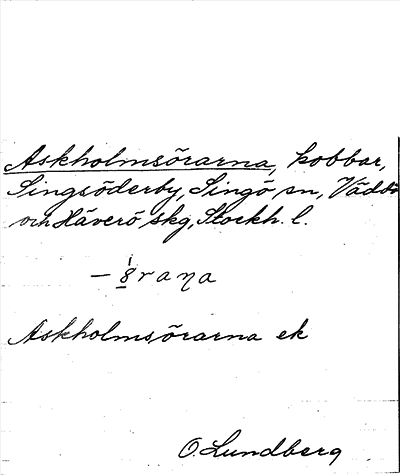 Askholmsörarna, kobbar,
Singsöderby, Singö sn, Vädö
och Häverö skg, Stockh. l.
– 8̱raṉa
Askholmsörarna ek
O. Lundberg